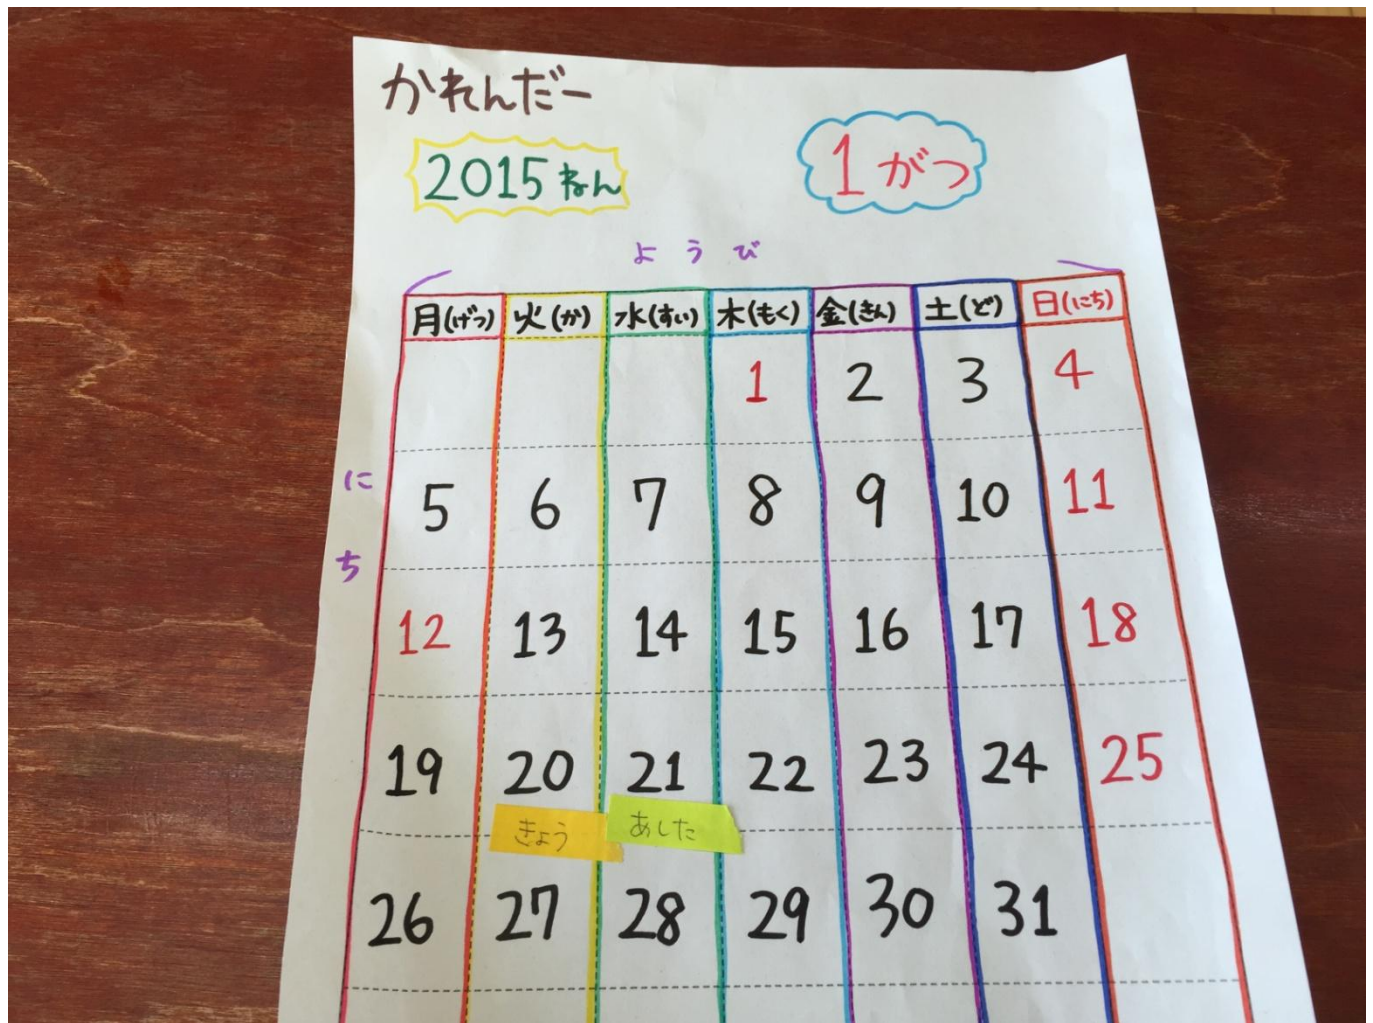 かれんだー
2015ねん 1がつ
ようび
月(げつ) 火(か) 水(すい) 木(もく) 金(きん) 土(ど) 日(にち)
1 2 3 4
にち
5 6 7 8 9 10 11
12 13 14 15 16 17 18
19 20 21 22 23 24 25
きょう あした
26 27 28 29 30 31